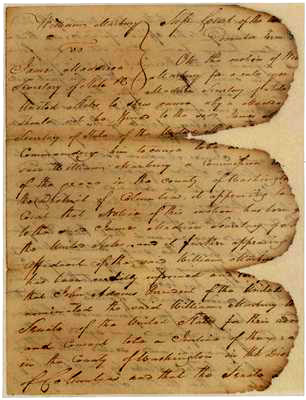 William Marbury Sup. Court of the
vs December term
James Madison On the motion of
Secretary of State Marbury for a rule
United States to shew cause why a Manda
should not be to the said James
Secretary of State of the United
Commanding him to cause to be
said William Marbury a Commission
of the peace in the County of Washing
the district of Columbia, it appearing
Court that Notice of this motion has been
to the said James Madison Secretary of
the United States, and it further appearing
Affidavit of the said William Marbury
had been informed and
that John Adams President of the United
nominated the said William Marbury to
Senate of the United States for their adv
and consent to be a Justice of the
in the County of Washington in the Dist
of Columbia and that the Senate